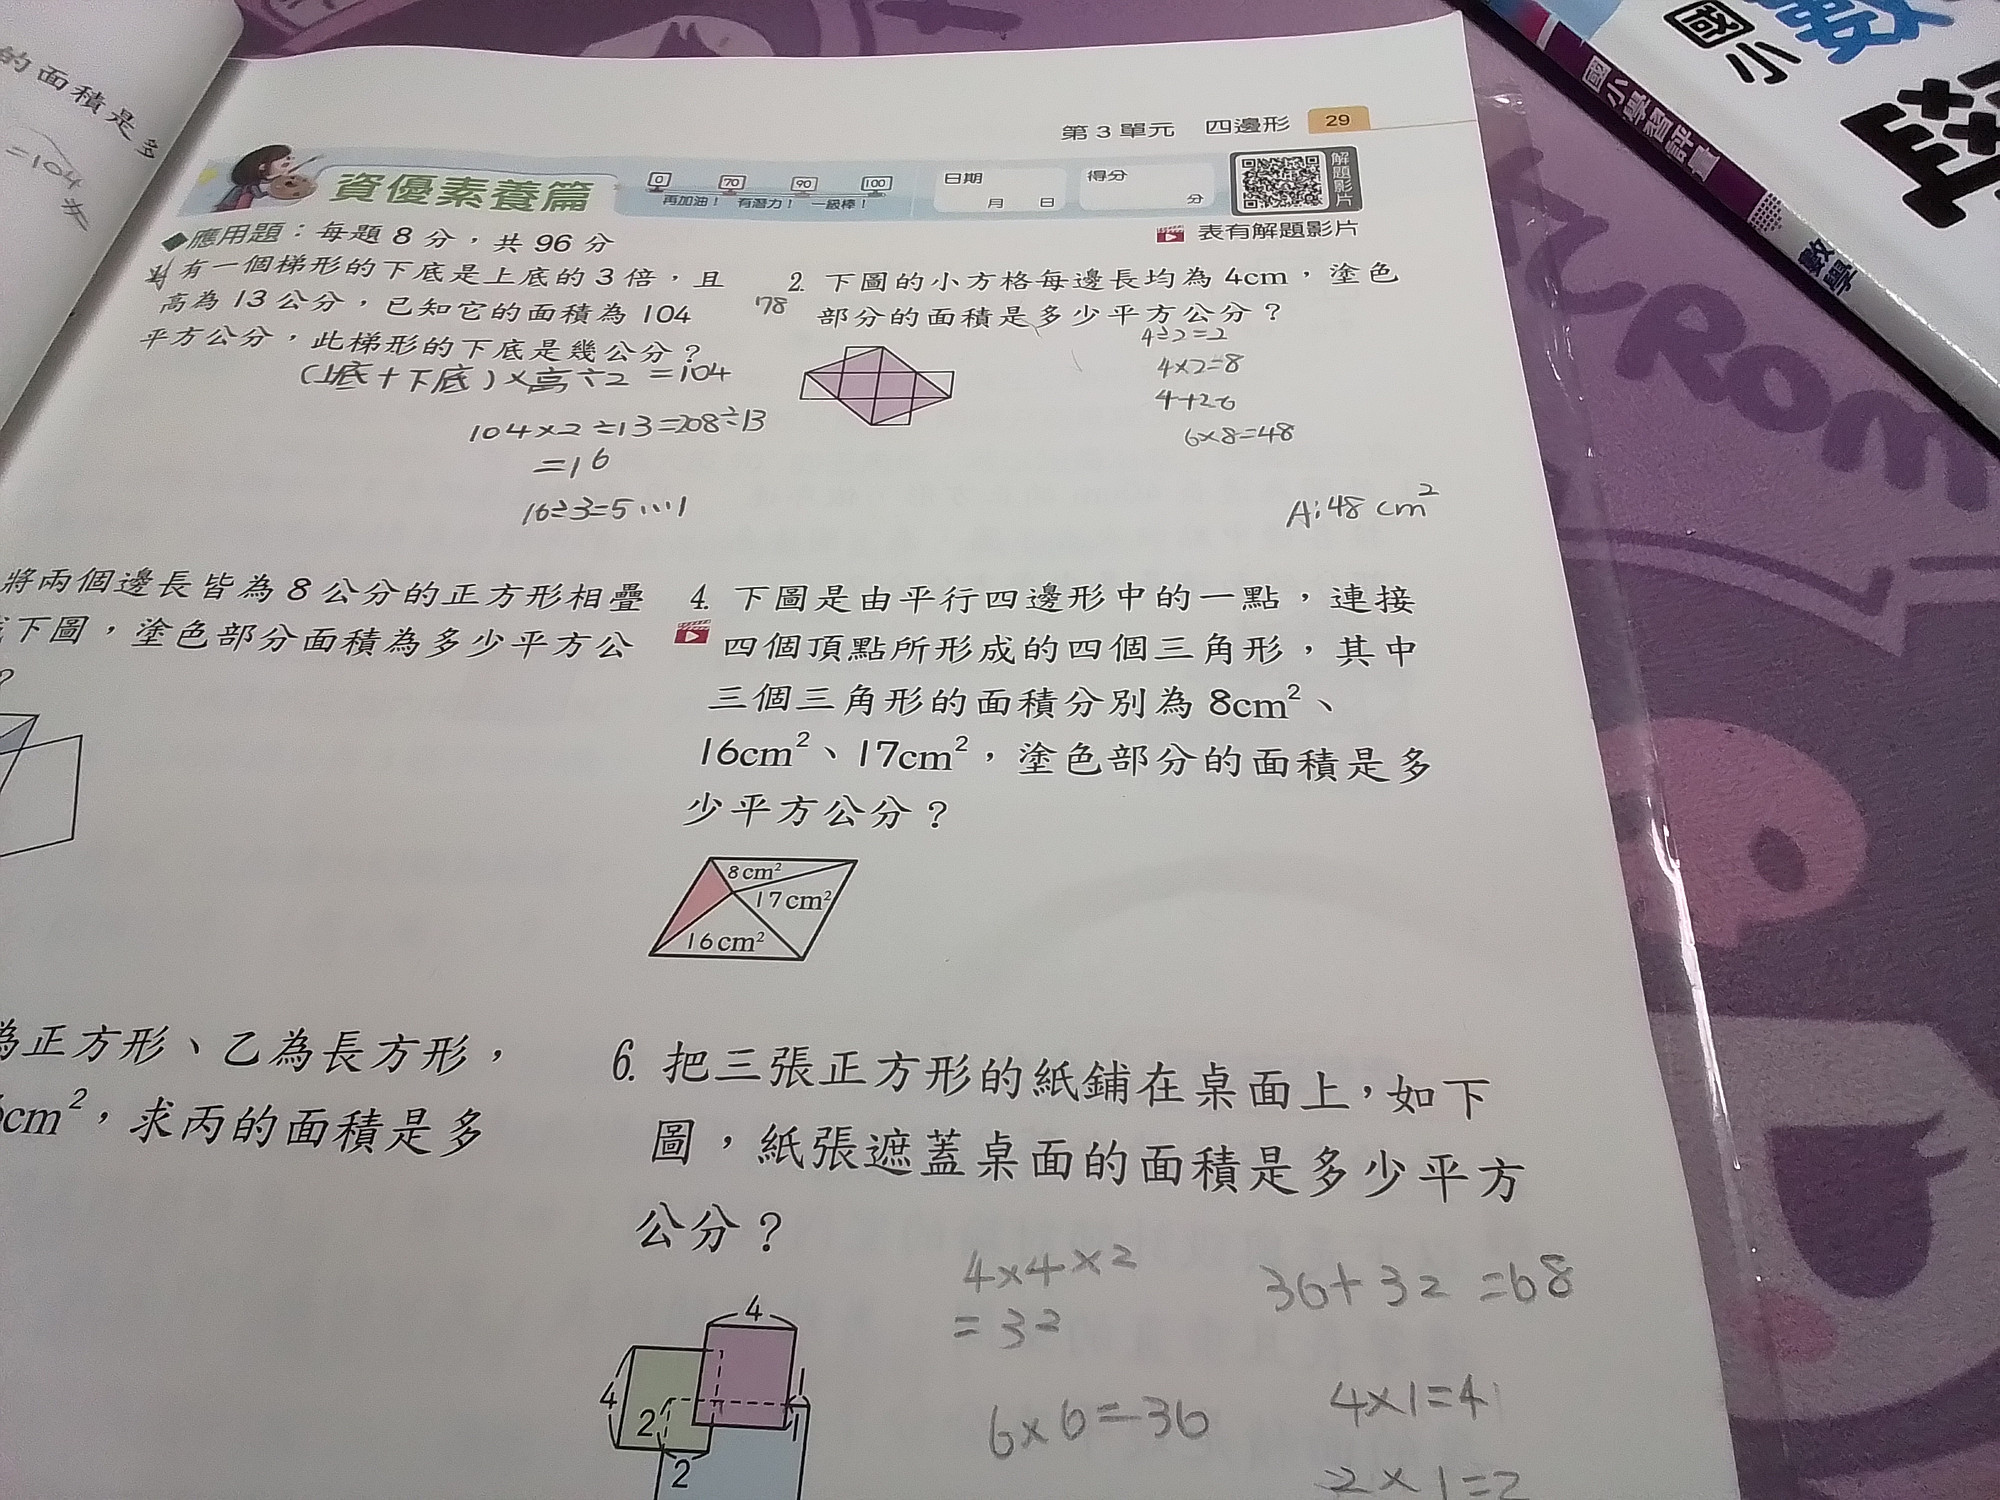 的面積是多
=104
第3單元 四邊形 29
資優素養篇
0 70 90 100
再加油! 有潛力! 一級棒!
日期
月 日
得分
分
解題影片
◆應用題：每題8分，共96分
表有解題影片
有一個梯形的下底是上底的3倍，且
高為13公分，已知它的面積為104
平方公分，此梯形的下底是幾公分？
(上底+下底)×高÷2=104
104×2÷13=208÷13
=16
16÷3=5…1
78
2. 下圖的小方格每邊長均為4cm，塗色
部分的面積是多少平方公分？
4÷2=2
4×2=8
4+26
6×8=48
A:48cm²
將兩個邊長皆為8公分的正方形相疊
下圖，塗色部分面積為多少平方公
?
4. 下圖是由平行四邊形中的一點，連接
四個頂點所形成的四個三角形，其中
三個三角形的面積分別為8cm²、
16cm²、17cm²，塗色部分的面積是多
少平方公分？
8cm²
17cm²
16cm²
為正方形、乙為長方形，
cm²，求丙的面積是多
6. 把三張正方形的紙鋪在桌面上，如下
圖，紙張遮蓋桌面的面積是多少平方
公分？
4
4
2
2
1
1
4×4×2
=32
36+32=68
6×6=36
4×1=4
2×1=2
國小
數
國小學習評量
數學
ROM